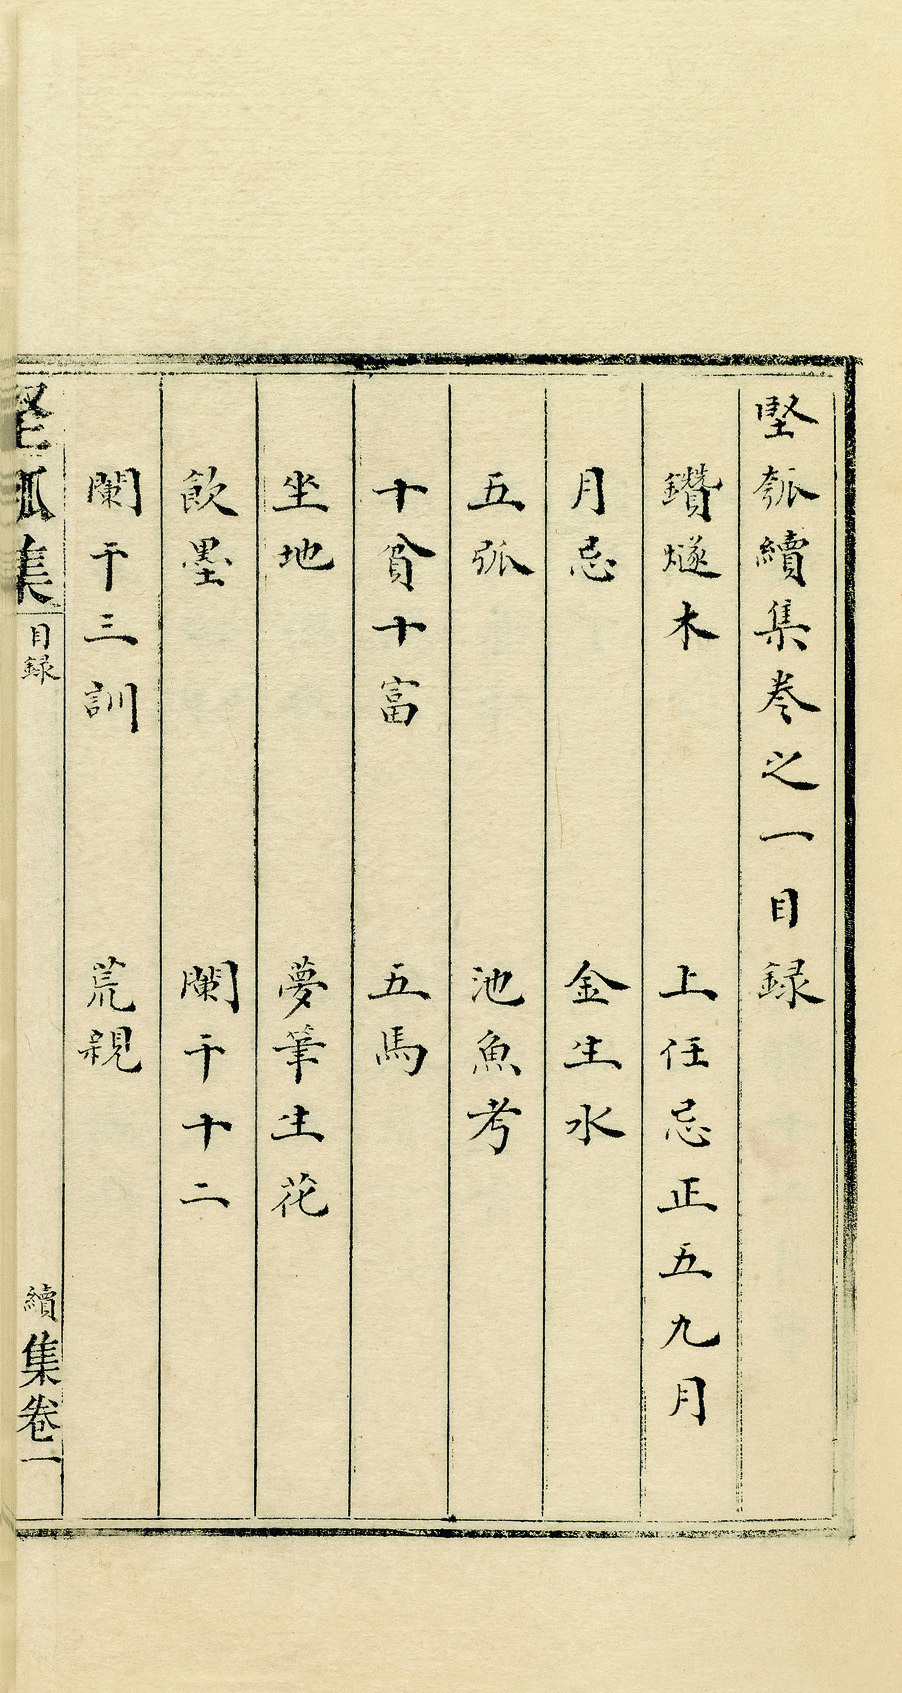 堅瓠續集卷之一目録
鑽燧木　上任忌正五九月
月忌　金生水
五瓠　池魚考
十貧十富　五馬
坐地　夢筆生花
飲墨　闌干十二
闌干三訓　荒親
堅瓠集　目録　續集卷一